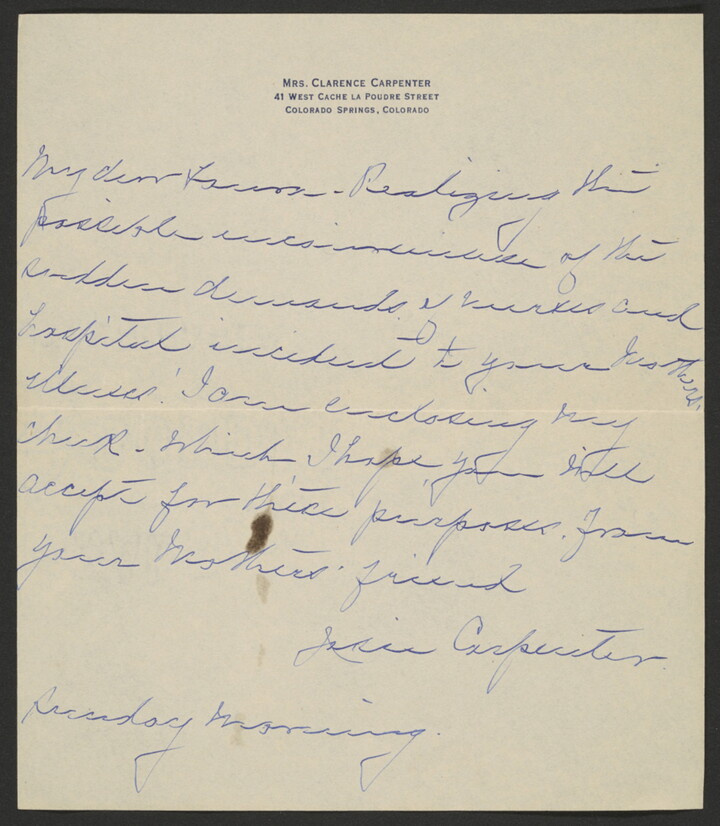 MRS. CLARENCE CARPENTER
41 WEST CACHE LA POUDRE STREET
COLORADO SPRINGS, COLORADO
My dear - Realizing the
possible inconvenience of the
sudden demands of nurses and
hospital incident to your Mothers'
illness! I am enclosing my
check - which I hope you will
accept for these purposes. From
your Mothers' friend
Josie Carpenter.
Sunday Morning.